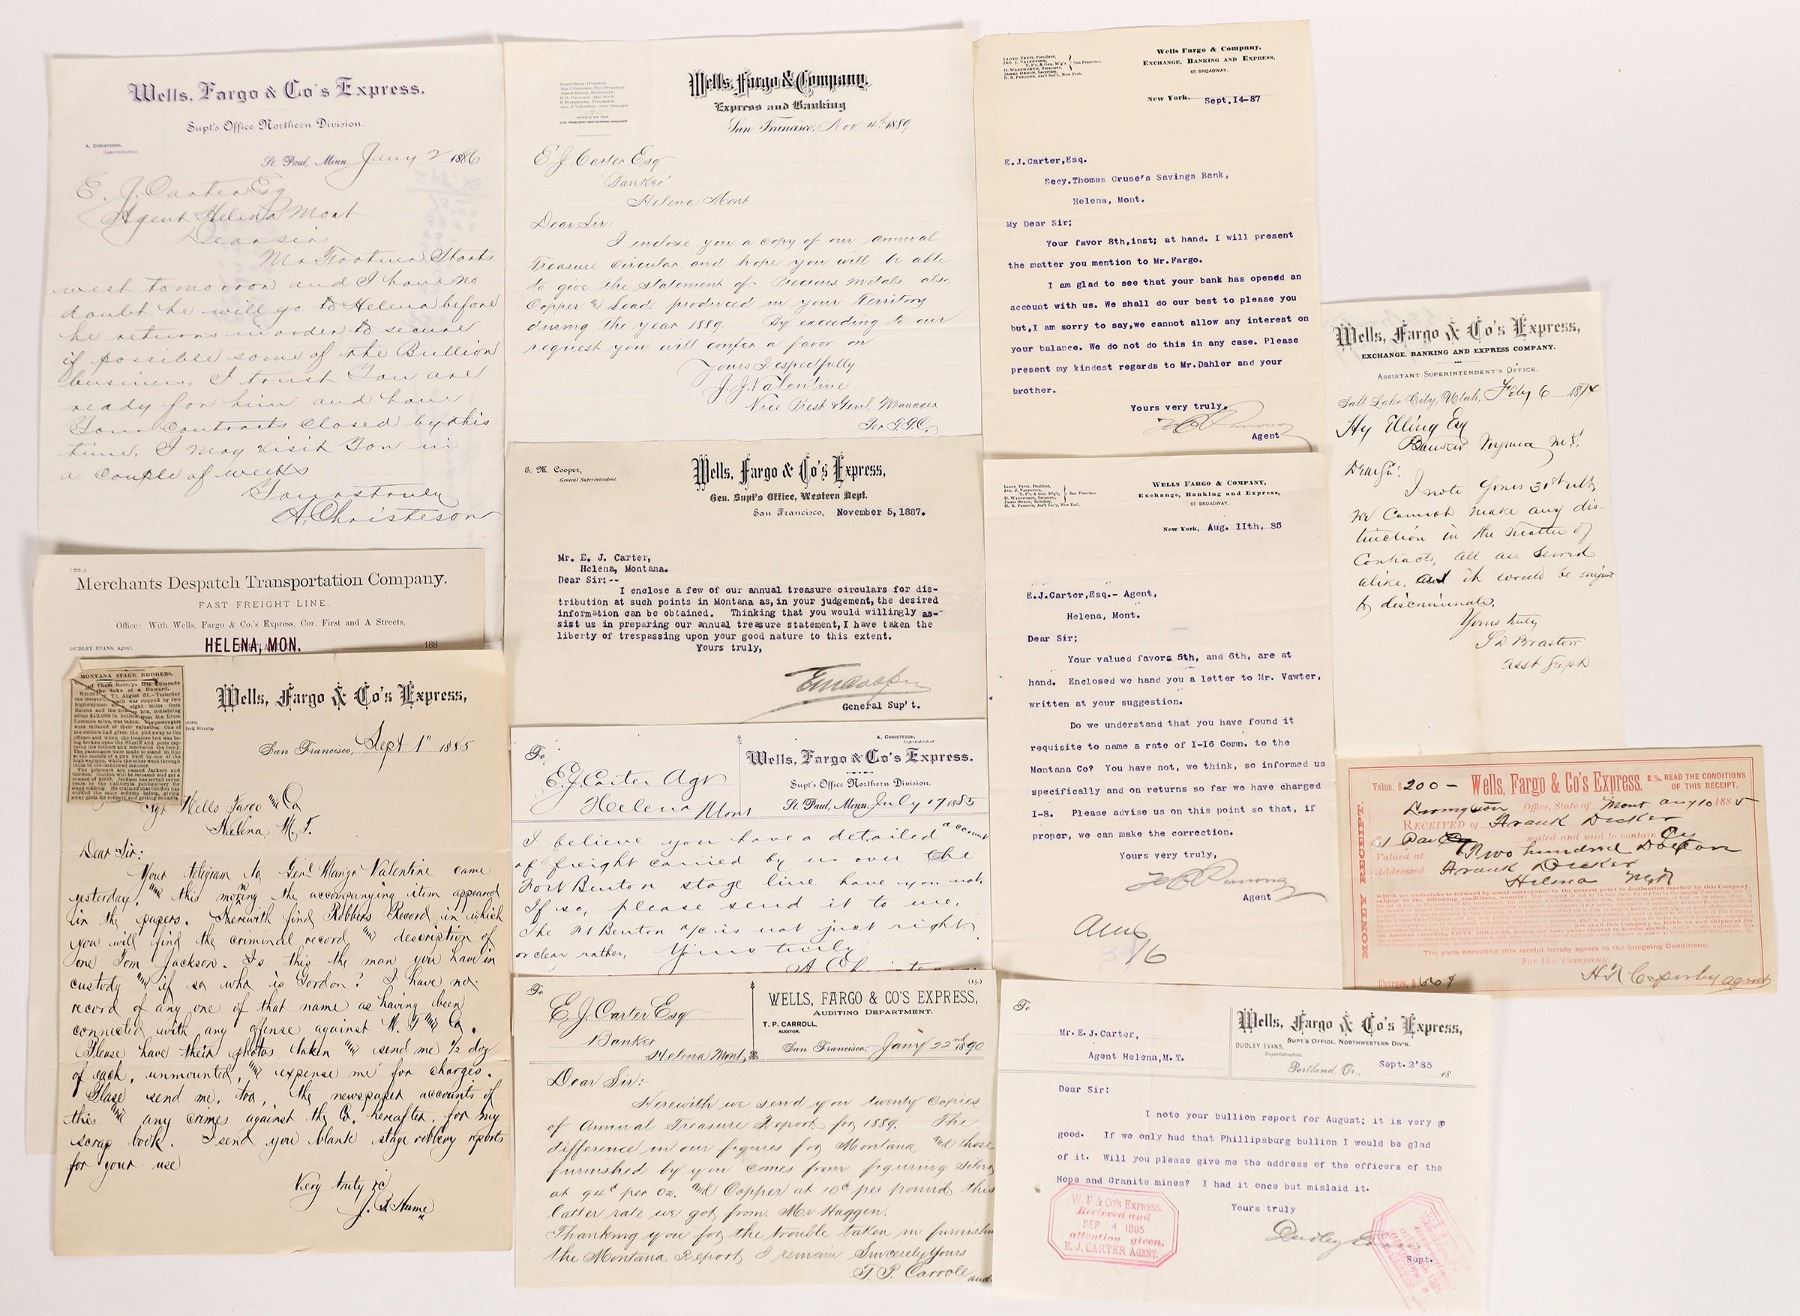 Wells, Fargo & Co's Express.
Supt's Office Northern Division.
A. CHRISTESON,
Superintendent.
St Paul, Minn. Jany 2 1886
E. J. Carter Esq
Agent Helena Mont
Dear sir
Mr Starts
west tomorrow and I have no
doubt he will go to Helena before
he returns in order to secure
if possible some of the Bullion
business. I trust You are
ready for him and have
Your Contracts closed by this
time. I may visit You in
a couple of weeks
Yours truly
A. Christeson
Wells, Fargo & Company,
Express and Banking
San Francisco, Nov 4th 1889
E. J. Carter Esq
"Banker"
Helena Mont
Dear Sir:
I enclose you a copy of our annual
Treasure Circular and hope you will be able
to give the Statement of Precious Metals, also
Copper & Lead produced in your Territory
during the year 1889. By exceeding to our
request you will confer a favor on
Yours respectfully
J. J. Valentine
Vice Prest & Genl. Manager
Wells Fargo & Company,
EXCHANGE, BANKING AND EXPRESS,
65 BROADWAY.
LLOYD TEVIS, President,
JNO. J. VALENTINE,
V. P't. & Gen. M'g'r.
H. WADSWORTH, Treasurer,
JAMES HERON, Secretary,
San Francisco.
H. B. PARSONS, Ass't Sec'y, New York.
New York, Sept. 14-87
E.J.Carter,Esq.
Secy.Thomas Cruse's Savings Bank,
Helena, Mont.
My Dear Sir;
Your favor 8th,inst; at hand. I will present
the matter you mention to Mr.Fargo.
I am glad to see that your bank has opened an
account with us. We shall do our best to please you
but,I am sorry to say,we cannot allow any interest on
your balance. We do not do this in any case. Please
present my kindest regards to Mr.Dahler and your
brother.
Yours very truly,
H B Parsons
Agent
Wells, Fargo & Co's Express,
EXCHANGE, BANKING AND EXPRESS COMPANY.
ASSISTANT SUPERINTENDENT'S OFFICE.
Salt Lake City, Utah, Feby 6 1874
Hy Elling Esq
Banker Virginia M.T.
Dear Sir:
I note yours 31st ult,
We Cannot make any dis-
tinction in the matter of
Contracts, all are served
alike, and it would be unjust
to discriminate.
Yours truly
Asst Supt
E. M. Cooper,
General Superintendent.
Wells, Fargo & Co's Express,
Gen. Supt's Office, Western Dept.
San Francisco, November 5, 1887.
Mr. E. J. Carter,
Helena, Montana.
Dear Sir:--
I enclose a few of our annual treasure circulars for dis-
tribution at such points in Montana as, in your judgement, the desired
information can be obtained. Thinking that you would willingly as-
sist us in preparing our annual treasure statement, I have taken the
liberty of trespassing upon your good nature to this extent.
Yours truly,
E M Cooper
General Sup't.
WELLS FARGO & COMPANY,
Exchange, Banking and Express,
65 BROADWAY.
New York, Aug. IIth, 85
E.J.Carter,Esq.- Agent,
Helena, Mont.
Dear Sir;
Your valued favors 5th, and 6th, are at
hand. Enclosed we hand you a letter to Mr. Vawter,
written at your suggestion.
Do we understand that you have found it
requisite to name a rate of I-16 Comn. to the
Montana Co? You have not, we think, so informed us
specifically and on returns so far we have charged
I-8. Please advise us on this point so that, if
proper, we can make the correction.
Yours very truly,
H B Parsons
Agent
Merchants Despatch Transportation Company.
FAST FREIGHT LINE.
Office: With Wells, Fargo & Co.'s Express, Cor. First and A Streets,
DUDLEY EVANS, Agent.
HELENA, MON. 188
MONTANA STAGE ROBBERS.
Wells, Fargo & Co's Express,
San Francisco, Sept 1" 1885
Agt Wells Fargo & Co
Helena M. T.
Dear Sir:
Your telegram to Genl Mangr Valentine came
yesterday, and this morning the accompanying item appeared
in the papers. Herewith find Robbers Record in which
you will find the criminal record and description of
one Tom Jackson. Is this the man you have in
custody and if so who is Gordon? I have no
record of any one of that name as having been
connected with any offense against W. F. and Co.
Please have their photos taken and send me 1/2 doz
of each, unmounted, and expense me for charges.
Please send me, too, the newspaper accounts of
this and any crimes against the Co. hereafter, for my
scrap book. I send you blank stage robbery reports
for your use
Very truly &c
J. B. Hume
To
E. J. Carter Agt
Helena Mont
A. CHRISTESON,
Superintendent
Wells, Fargo & Co's Express.
Supt's Office Northern Division.
St Paul, Minn. July 17 1885
I believe you have a detailed account
of freight carried by us over the
Fort Benton stage line have you not.
If so, please send it to me.
The Ft Benton a/c is not just right
or clear rather, Yours truly
A Christeson
Value, $ 200 - Wells, Fargo & Co's Express. READ THE CONDITIONS
OF THIS RECEIPT.
Livingston Office, State of Mont Aug 10 1885
RECEIVED of Frank Dicker
sealed and said to contain
Valued at Two hundred Dollars
Addressed Frank Dicker
Helena
MONEY RECEIPT.
The party accepting this receipt hereby agrees to the foregoing Conditions.
For the Company,
agent
Charges, $
To
E. J. Carter Esq
Banker
Helena Mont
(15)
WELLS, FARGO & CO'S EXPRESS,
AUDITING DEPARTMENT.
T. P. CARROLL,
AUDITOR.
San Francisco, Jany 22nd 1890
Dear Sir:
Herewith we send you twenty Copies
of Annual Treasure Report for 1889. The
difference in our figures for Montana and those
furnished by you comes from figuring Silver
at 94c per Oz. and Copper at 10c per pound, this
latter rate we got from Mr Haggen.
Thanking you for the trouble taken in furnishin
the Montana Report, I remain Sincerely Yours
T. P. Carroll
To
Mr. E.J.Carter,
Agent Helena,M.T.
Wells, Fargo & Co's Express,
SUPT'S OFFICE, NORTHWESTERN DIV'N.
DUDLEY EVANS,
Superintendent.
Portland, Or., Sept.2'85 18
Dear Sir:
I note your bullion report for August; it is very
good. If we only had that Phillipsburg bullion I would be glad
of it. Will you please give me the address of the officers of the
Hope and Granite mines? I had it once but mislaid it.
Yours truly
Dudley Evans
Supt.
W. F & CO'S EXPRESS.
Recieved and
SEP 4 1885
attention given.
E. J. CARTER AGENT.